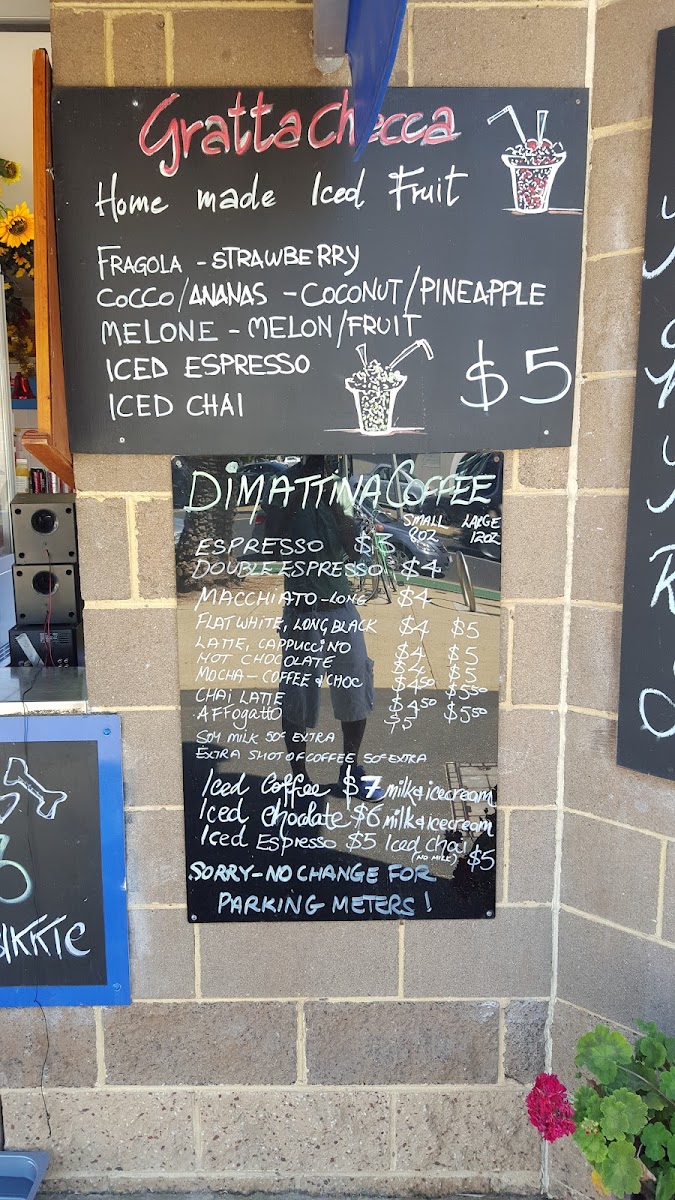 Grattachecca
Home made Iced Fruit
FRAGOLA - STRAWBERRY
COCCO/ANANAS - COCONUT/PINEAPPLE
MELONE - MELON/FRUIT
ICED ESPRESSO
ICED CHAI
$5
DIMATTINA COFFEE
SMALL LARGE
8OZ 12OZ
ESPRESSO $3
DOUBLE ESPRESSO $4
MACCHIATO - LONG $4
FLAT WHITE, LONG BLACK $4 $5
LATTE, CAPPUCCINO $4 $5
HOT CHOCOLATE $4 $5
MOCHA - COFFEE & CHOC $4.50 $5.50
CHAI LATTE $4.50 $5.50
AFFOGATTO $5
SOY MILK 50¢ EXTRA
EXTRA SHOT OF COFFEE 50¢ EXTRA
Iced Coffee $7 milk & icecream
Iced Chocolate $6 milk & icecream
Iced Espresso $5 Iced Chai $5
(NO MILK)
SORRY - NO CHANGE FOR
PARKING METERS!